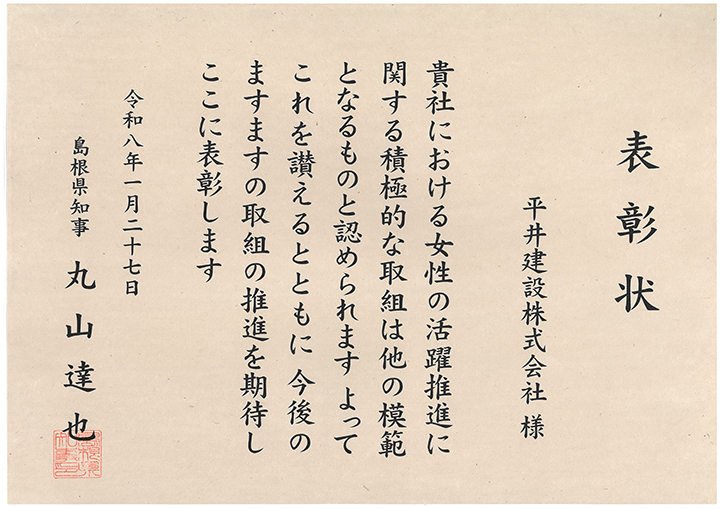 表彰状
平井建設株式会社 様
貴社における女性の活躍推進に
関する積極的な取組は他の模範
となるものと認められます よって
これを讃えるとともに 今後の
ますますの取組の推進を期待し
ここに表彰します
令和八年一月二十七日
島根県知事 丸山達也